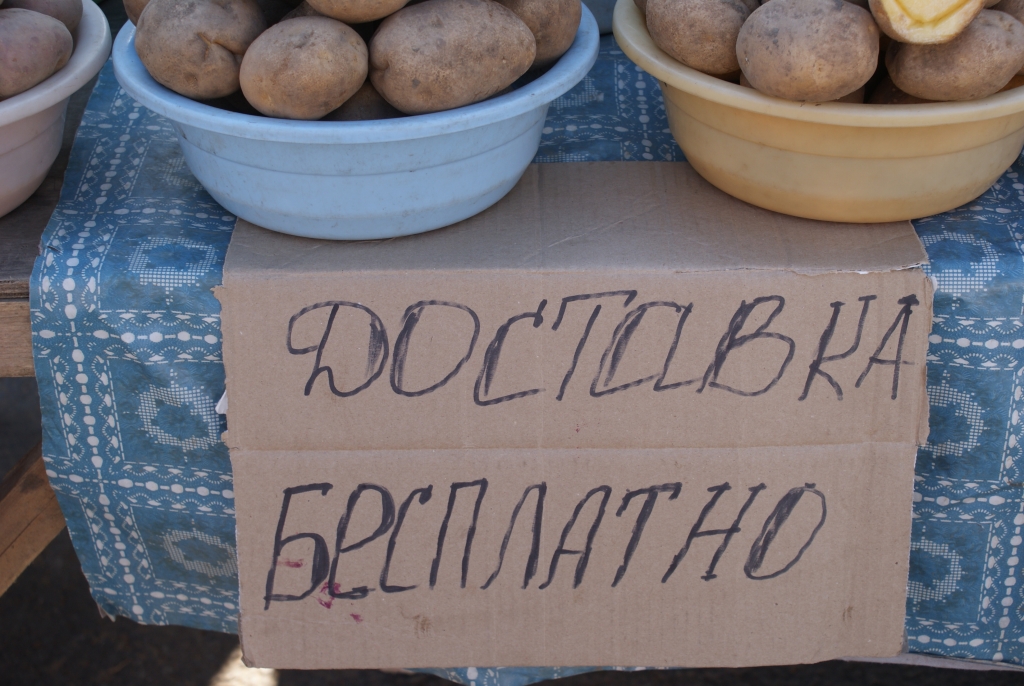 ДОСТАВКА
БЕСПЛАТНО